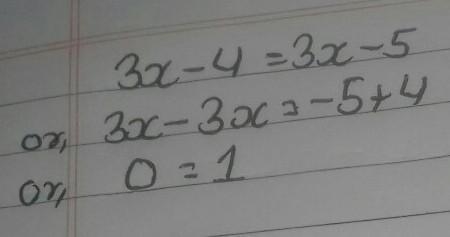 3x-4 = 3x-5
or, 3x-3x = -5+4
or, 0 = 1